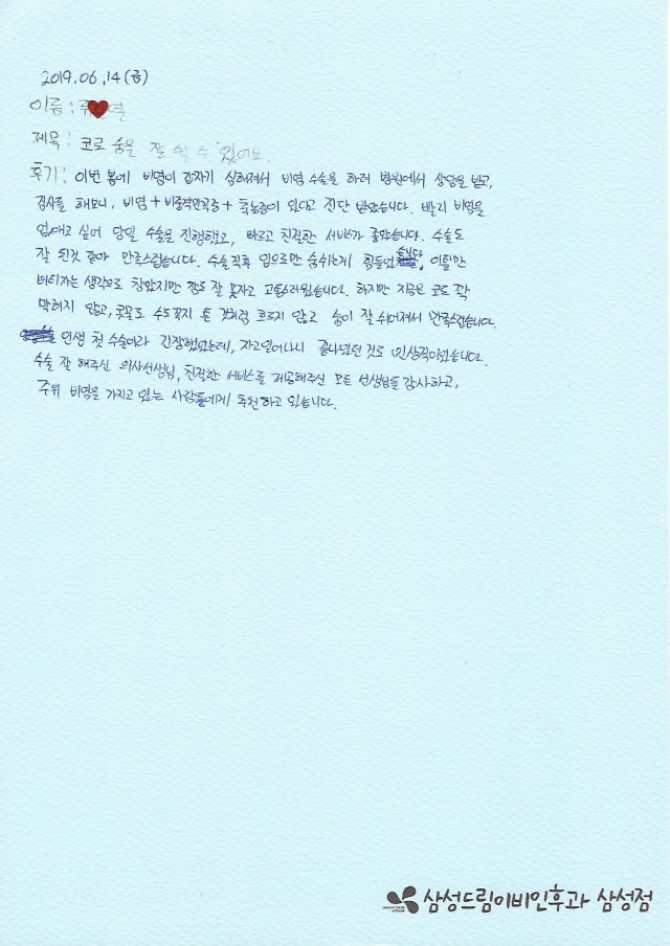 2019.06.14(금)
이름 : 류♥열
제목 : 코로 숨을 잘 쉴 수 있어요.
후기 : 이번 봄에 비염이 갑자기 심해져서 비염 수술을 하러 병원에서 상담을 받고,
검사를 해보니, 비염+비중격만곡증+축농증이 있다고 진단 받았습니다. 빨리 비염을
없애고 싶어 당일 수술을 진행했고, 빠르고 친절한 서비스가 좋았습니다. 수술도
잘 된것 같아 만족스럽습니다. 수술 직후 입으로만 숨쉬는게 힘들었습니다, 이틀만
버티자는 생각으로 참았지만 잠도 잘 못자고 고통스러웠습니다. 하지만 지금은 코도 꽉
막히지 않고, 콧물도 수도꼭지 튼 것처럼 흐르지 않고 숨이 잘 쉬어져서 만족스럽습니다.
인생 첫 수술이라 긴장했었는데, 자고일어나니 끝나있던 것도 인상적이었습니다.
수술 잘 해주신 의사선생님, 친절한 서비스를 제공해주신 모든 선생님들 감사하고,
주위 비염을 가지고 있는 사람들에게 추천하고 있습니다.
삼성드림이비인후과 삼성점